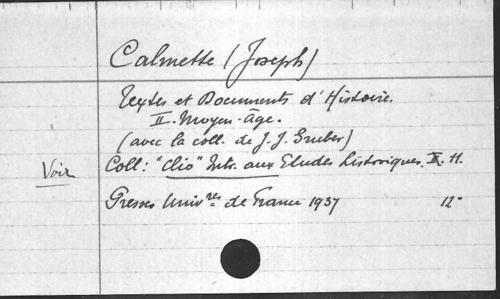 Calmette (Joseph)
Textes et Documents d'Histoire.
II. Moyen-âge.
(avec la coll. de J. J. Gruber)
Voir Coll: "Clio" Intr. aux Etudes historiques.
Presses Univ^res de France 1937 12-